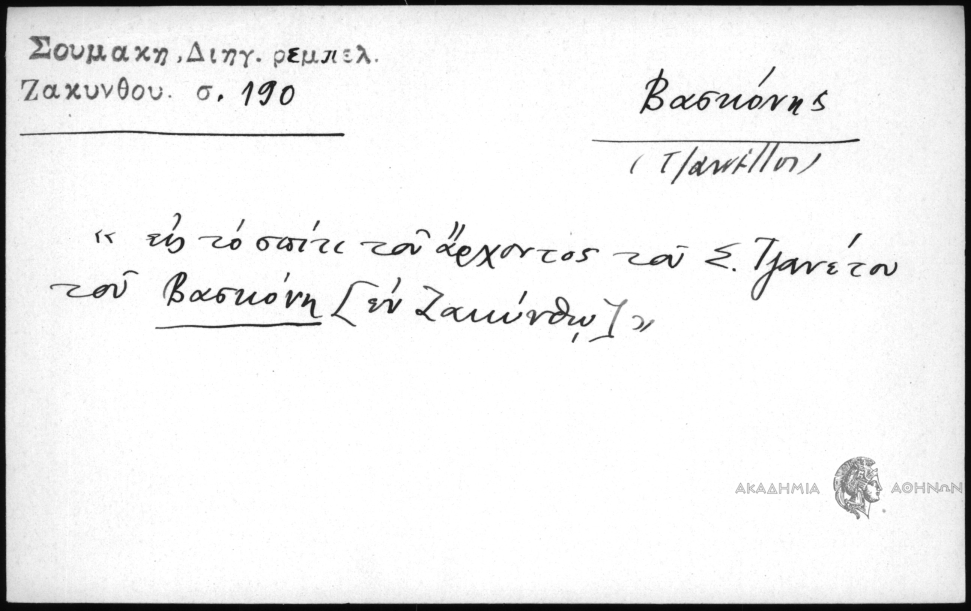 Σουμακη, Διηγ. ρεμπελ.
Ζακυνθου. σ. 190
Βασκόνης
« εἰς τό σπίτι τοῦ ἄρχοντος τοῦ Σ. Τζανέτου
τοῦ Βασκόνη [ἐν Ζακύνθῳ] »
ΑΚΑΔΗΜΙΑ ΑΘΗΝΩΝ